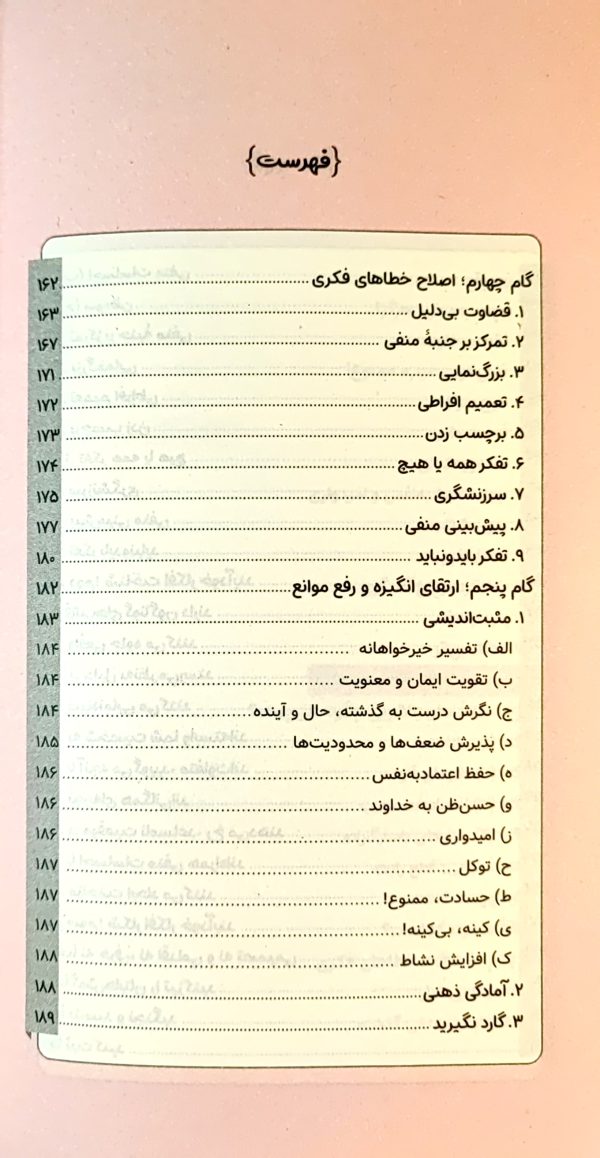 {فهرست}
گام چهارم؛ اصلاح خطاهای فکری ........ ۱۶۲
۱. قضاوت بی‌دلیل ........ ۱۶۳
۲. تمرکز بر جنبهٔ منفی ........ ۱۶۷
۳. بزرگ‌نمایی ........ ۱۷۱
۴. تعمیم افراطی ........ ۱۷۲
۵. برچسب زدن ........ ۱۷۳
۶. تفکر همه یا هیچ ........ ۱۷۴
۷. سرزنشگری ........ ۱۷۵
۸. پیش‌بینی منفی ........ ۱۷۷
۹. تفکر بایدونباید ........ ۱۸۰
گام پنجم؛ ارتقای انگیزه و رفع موانع ........ ۱۸۲
۱. مثبت‌اندیشی ........ ۱۸۳
الف) تفسیر خیرخواهانه ........ ۱۸۴
ب) تقویت ایمان و معنویت ........ ۱۸۴
ج) نگرش درست به گذشته، حال و آینده ........ ۱۸۴
د) پذیرش ضعف‌ها و محدودیت‌ها ........ ۱۸۵
ه) حفظ اعتمادبه‌نفس ........ ۱۸۶
و) حسن‌ظن به خداوند ........ ۱۸۶
ز) امیدواری ........ ۱۸۶
ح) توکل ........ ۱۸۷
ط) حسادت، ممنوع! ........ ۱۸۷
ی) کینه، بی‌کینه! ........ ۱۸۷
ک) افزایش نشاط ........ ۱۸۸
۲. آمادگی ذهنی ........ ۱۸۸
۳. گارد نگیرید ........ ۱۸۹